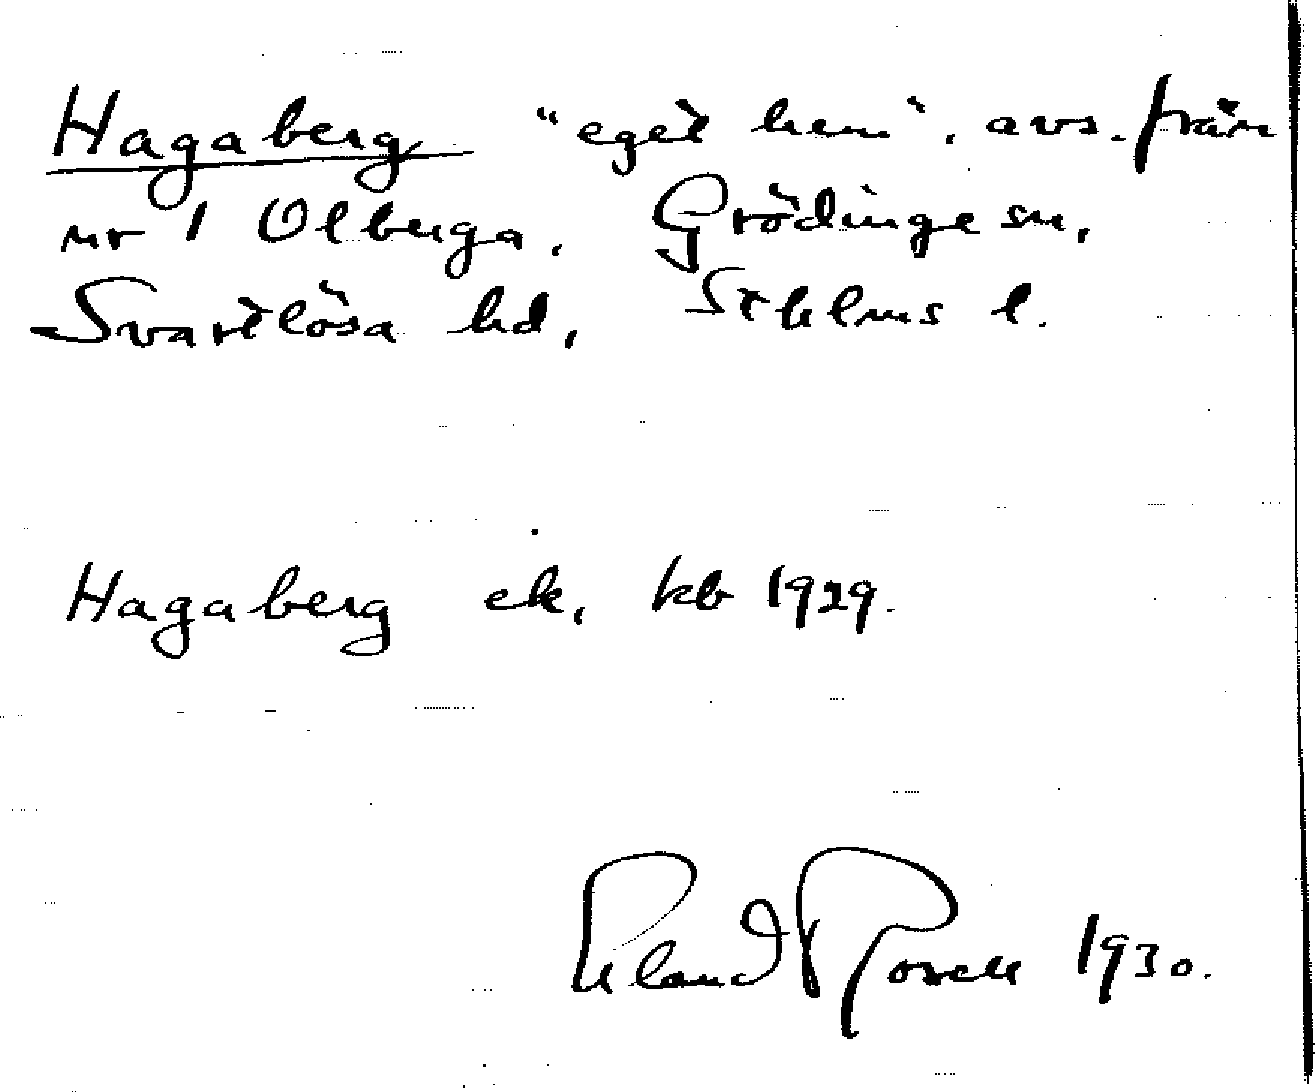 Hagaberg "eget hem". avs. från
nr 1 Olberga. Grödinge sn,
Svartlösa hd, Sthlms l.
Hagaberg ek. kb 1929.
Erland Rosell 1930.